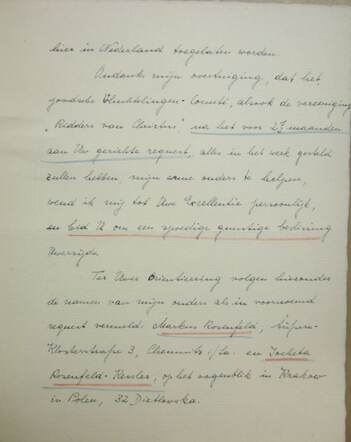 hier in Nederland toegelaten worden.
Ondanks mijn overtuiging, dat het
joodsche Vluchtelingen-Comité, alsook de vereeniging
"Ridders van Christus" na het voor 27 maanden
aan Uw gerichte request, alles in het werk gesteld
zullen hebben mijn arme ouders te helpen,
wend ik mij tot Uwe Excellentie persoonlijk,
en bid U om een spoedige gunstige beslissing
Uwerzijds.
Ter Uwer Orientieering volgen hieronder
de namen van mijn ouders als in voornoemd
request vermeld: Markus Rosenfeld,
Klosterstraße 3, Chemnitz i/Sa. en Jocheta
Rosenfeld-Kessler, op het oogenblik in Krakow
in Polen, 32 Dietlowska.